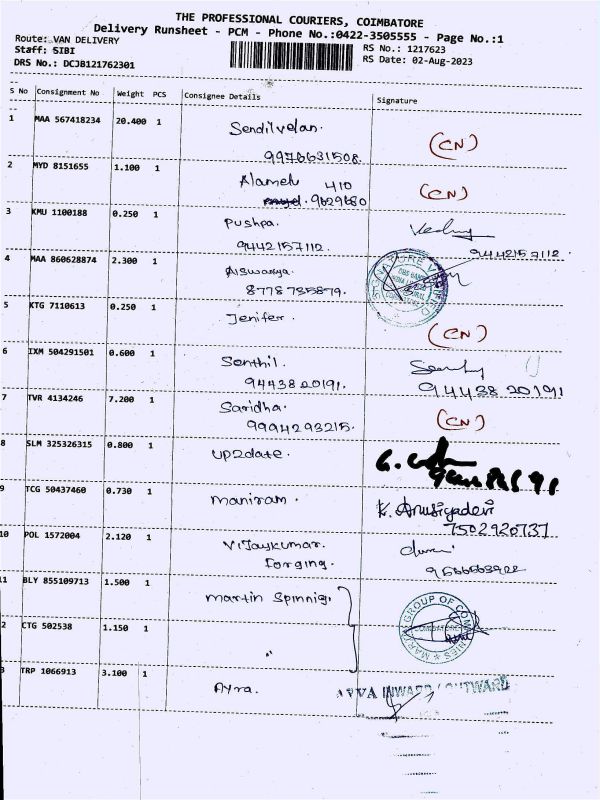 THE PROFESSIONAL COURIERS, COIMBATORE
Delivery Runsheet - PCM - Phone No.:0422-3505555 - Page No.:1
Route: VAN DELIVERY
RS No.: 1217623
Staff: SIBI
RS Date: 02-Aug-2023
DRS No.: DCJB121762301
S No Consignment No Weight PCS Consignee Details Signature
1 MAA 567418234 20.400 1 Sendilvelan.
9976631508. (CN)
2 MYD 8151655 1.100 1 Alameh 410
9629680 (CN)
3 KMU 1100188 0.250 1 Pushpa.
9442157112. 9442157112.
4 MAA 860628874 2.300 1 Aiswarya.
8778735879.
5 KTG 7110613 0.250 1 Jenifer. (CN)
6 IXM 504291501 0.600 1 Senthil.
9443820191. 9443820191
7 TVR 4134246 7.200 1 Saridha.
9994293215. (CN)
8 SLM 325326315 0.800 1 up2date.
9 TCG 50437460 0.730 1 maniram. K. Anusiyadevi
7502920737
10 POL 1572004 2.120 1 Vijaykumar.
Forging.
1 BLY 855109713 1.500 1 martin Spinnig.
GROUP OF COMPANIES
COIMBATORE
2 CTG 502538 1.150 1 "
3 TRP 1066913 3.100 1 Ayra. INWARD / OUTWARD